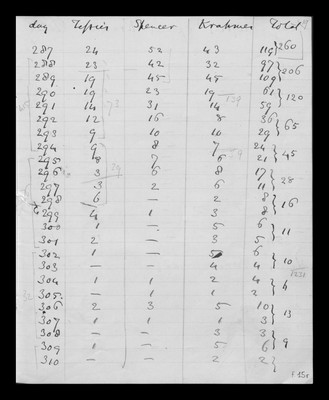 day Jeffries Spencer Krahmer Total
287 24 52 43 119 } 260
288 23 42 32 97 } 206
289 19 45 45 109
290 19 23 19 61 } 120
291 14 31 14 59
292 12 16 8 36 } 65
293 9 10 10 29
294 9 8 7 24 } 45
295 8 7 6 21
296 3 6 8 17 } 28
297 3 2 6 11
298 6 — 2 8 } 16
299 4 1 3 8
300 1 — 5 6 } 11
301 2 — 3 5
302 1 — 5 6 } 10
303 — — 4 4
304 1 1 2 4 } 6
305 — 1 1 2
306 2 3 5 10 } 13
307 1 1 1 3
308 — — 3 3 } 9
309 1 — 5 6
310 — — 2 2 }